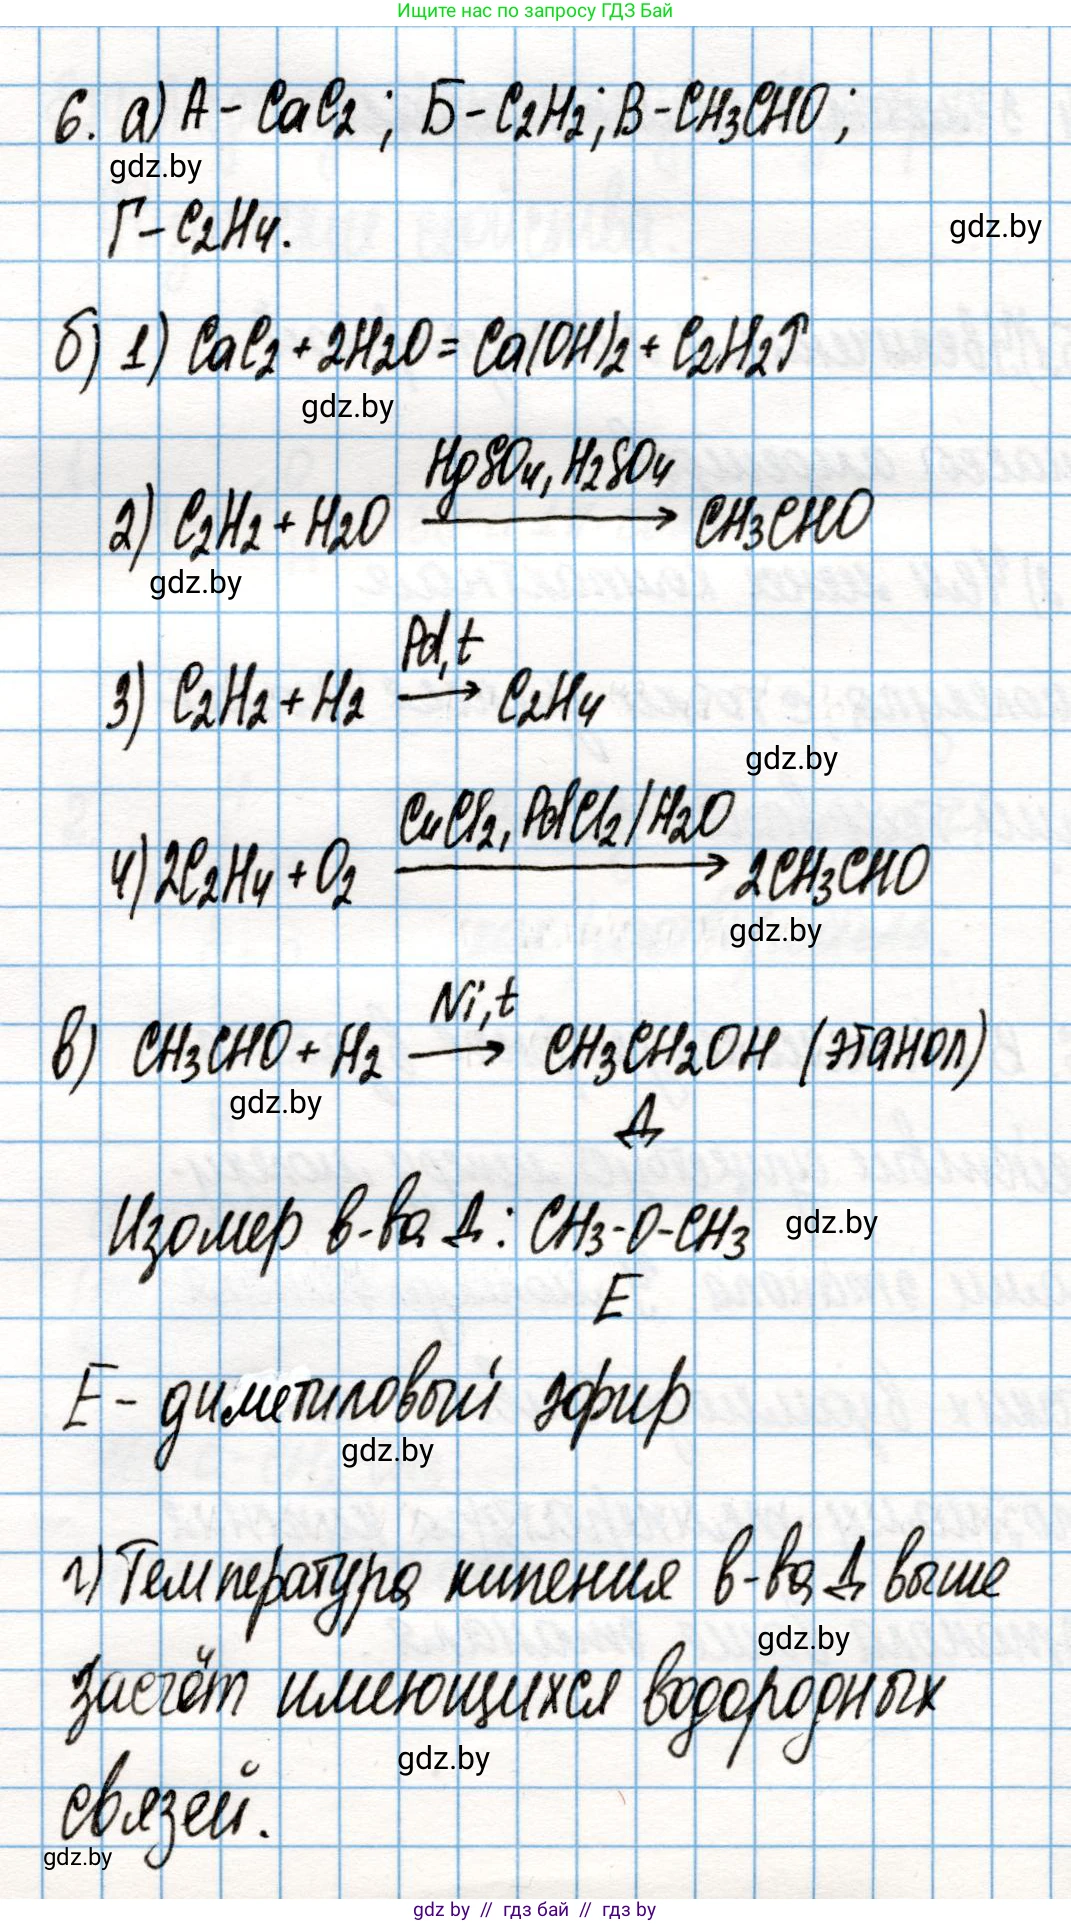 Ищите нас по запросу ГДЗ Бай
6. а) А - CaC2; Б - C2H2; В - CH3CHO;
gdz.by
Г - C2H4.
gdz.by
б) 1) CaC2 + 2H2O = Ca(OH)2 + C2H2↑
gdz.by
HgSO4, H2SO4
2) C2H2 + H2O → CH3CHO
gdz.by
Pd, t
3) C2H2 + H2 → C2H4
gdz.by
CuCl2, PdCl2 / H2O
4) 2C2H4 + O2 → 2CH3CHO
gdz.by
Ni, t
в) CH3CHO + H2 → CH3CH2OH (этанол)
gdz.by
Д
Изомер в-ва Д: CH3-O-CH3
gdz.by
Е
Е - диметиловый эфир
gdz.by
г) Температура кипения в-ва Д выше
gdz.by
засчёт имеющихся водородных
gdz.by
связей.
gdz.by
gdz by // гдз бай // gdz by